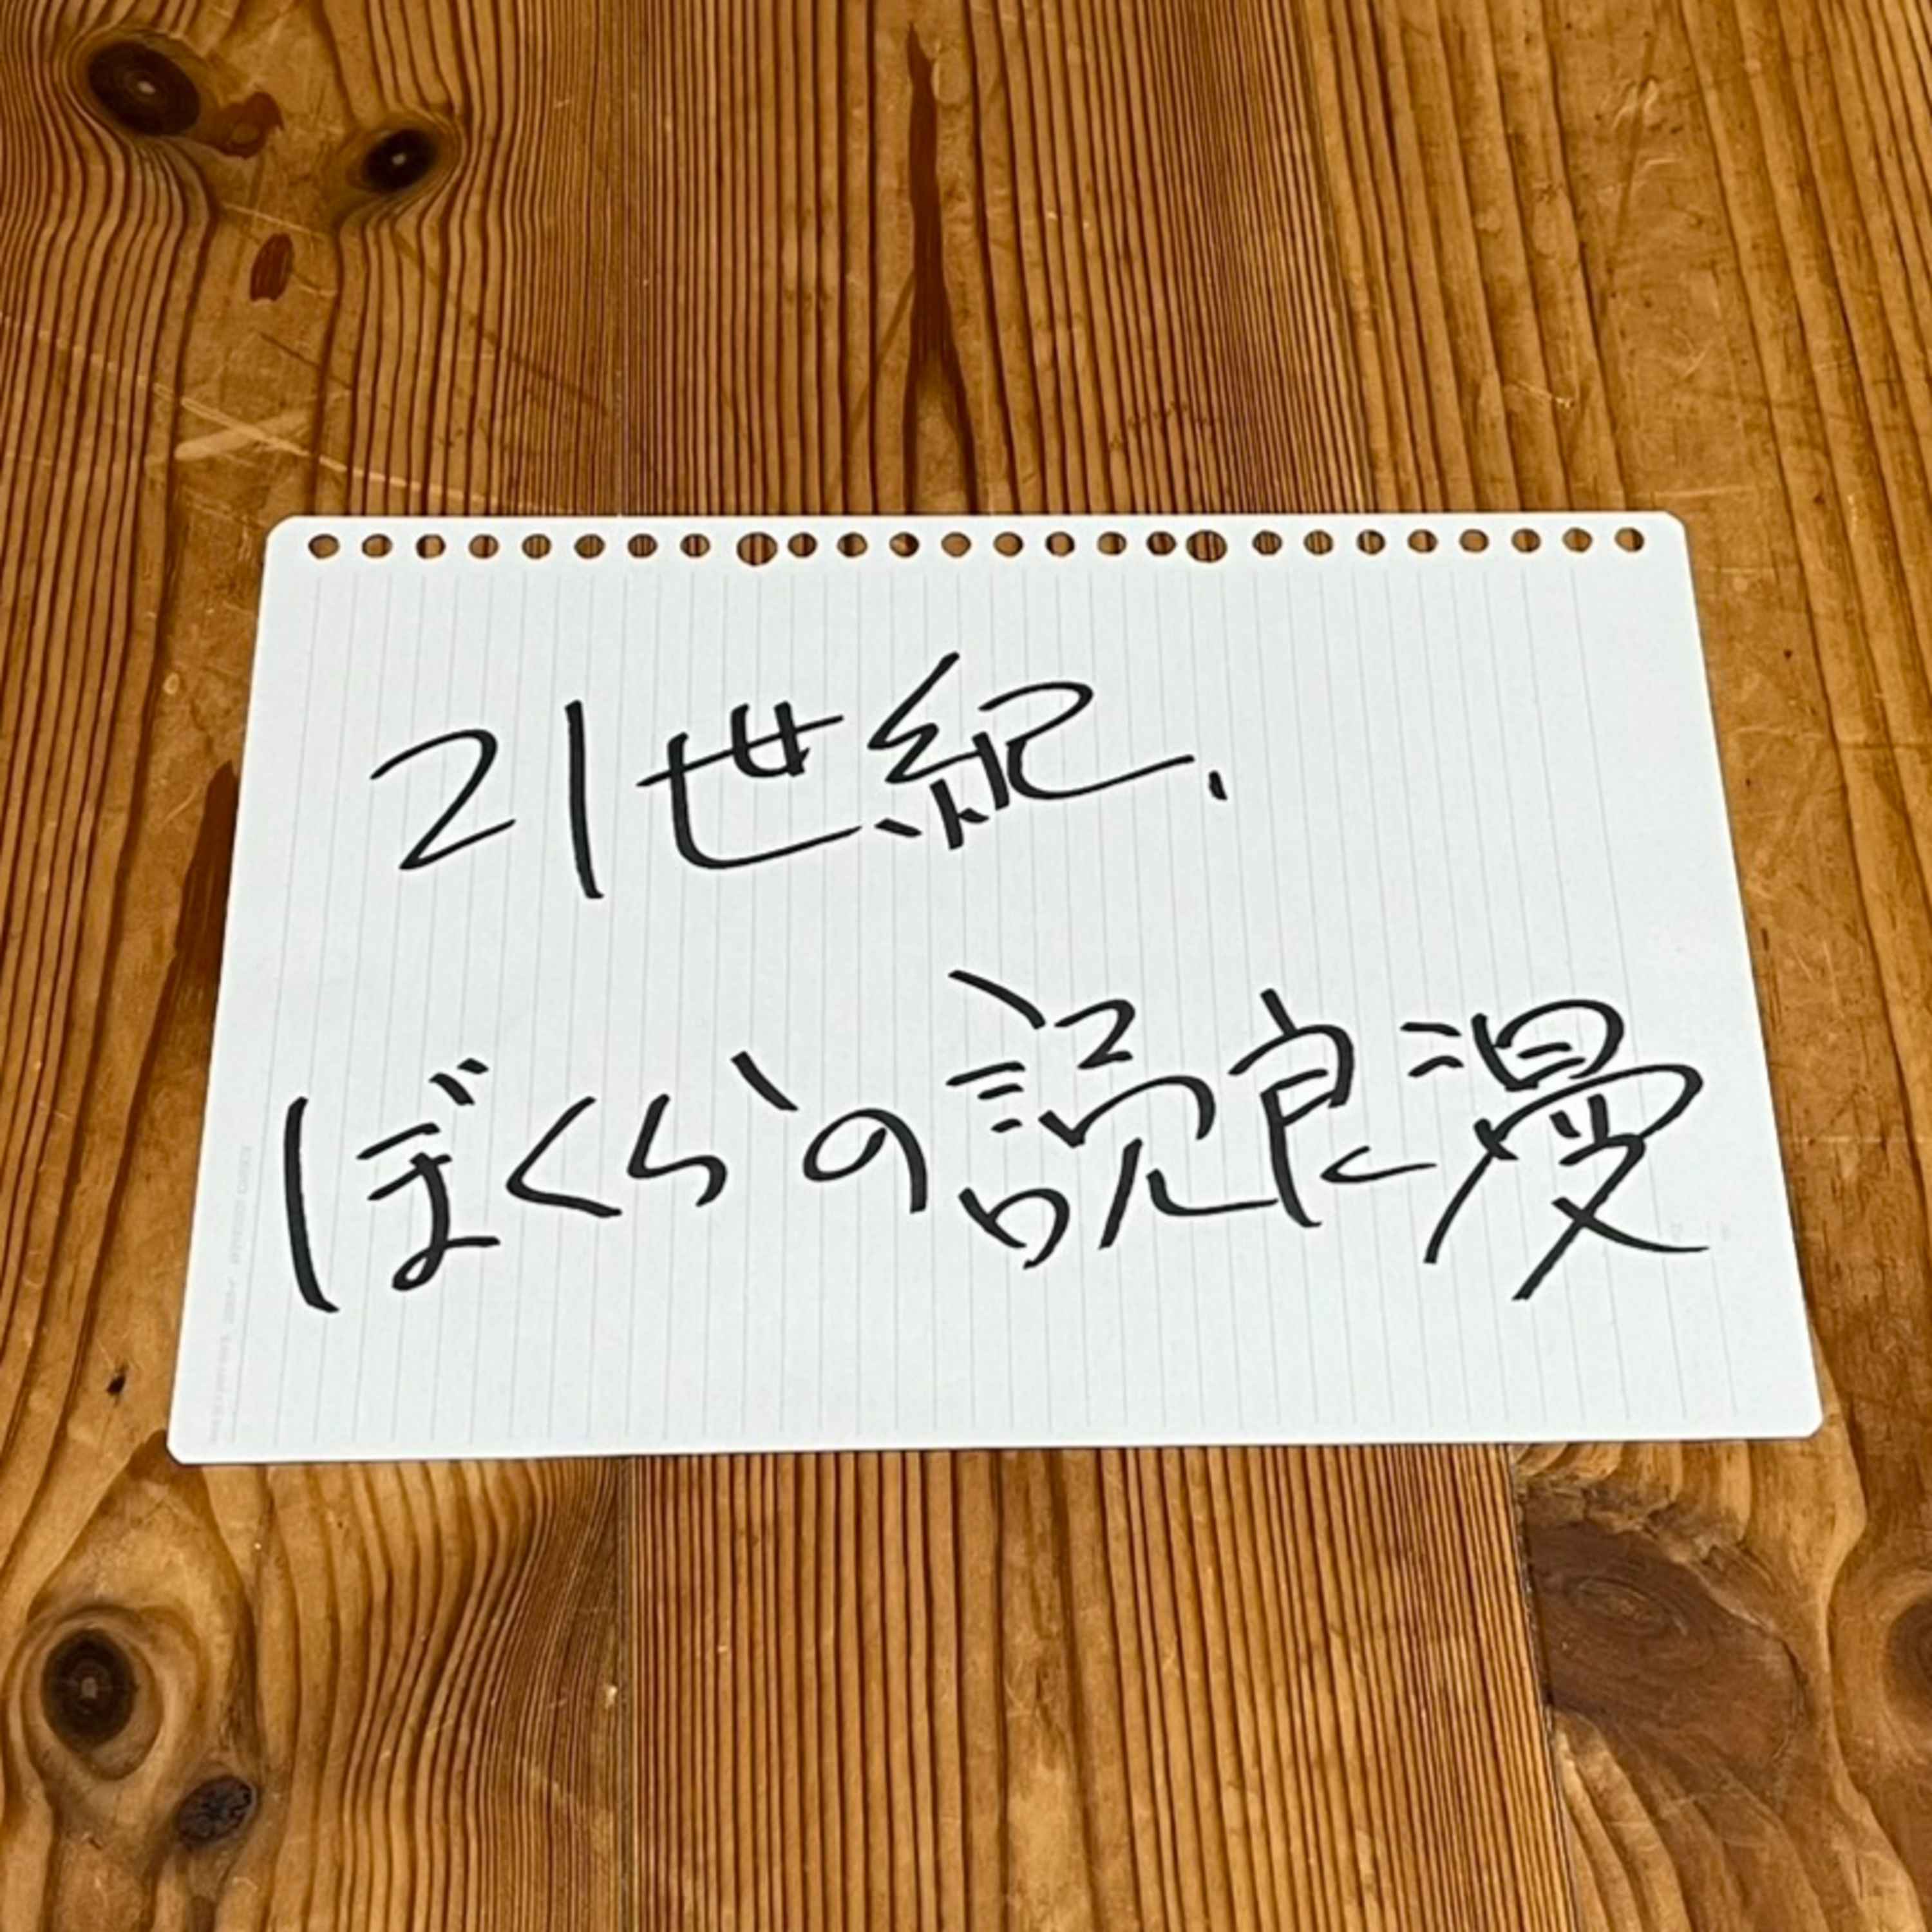 21世紀、
ぼくらの読良漫